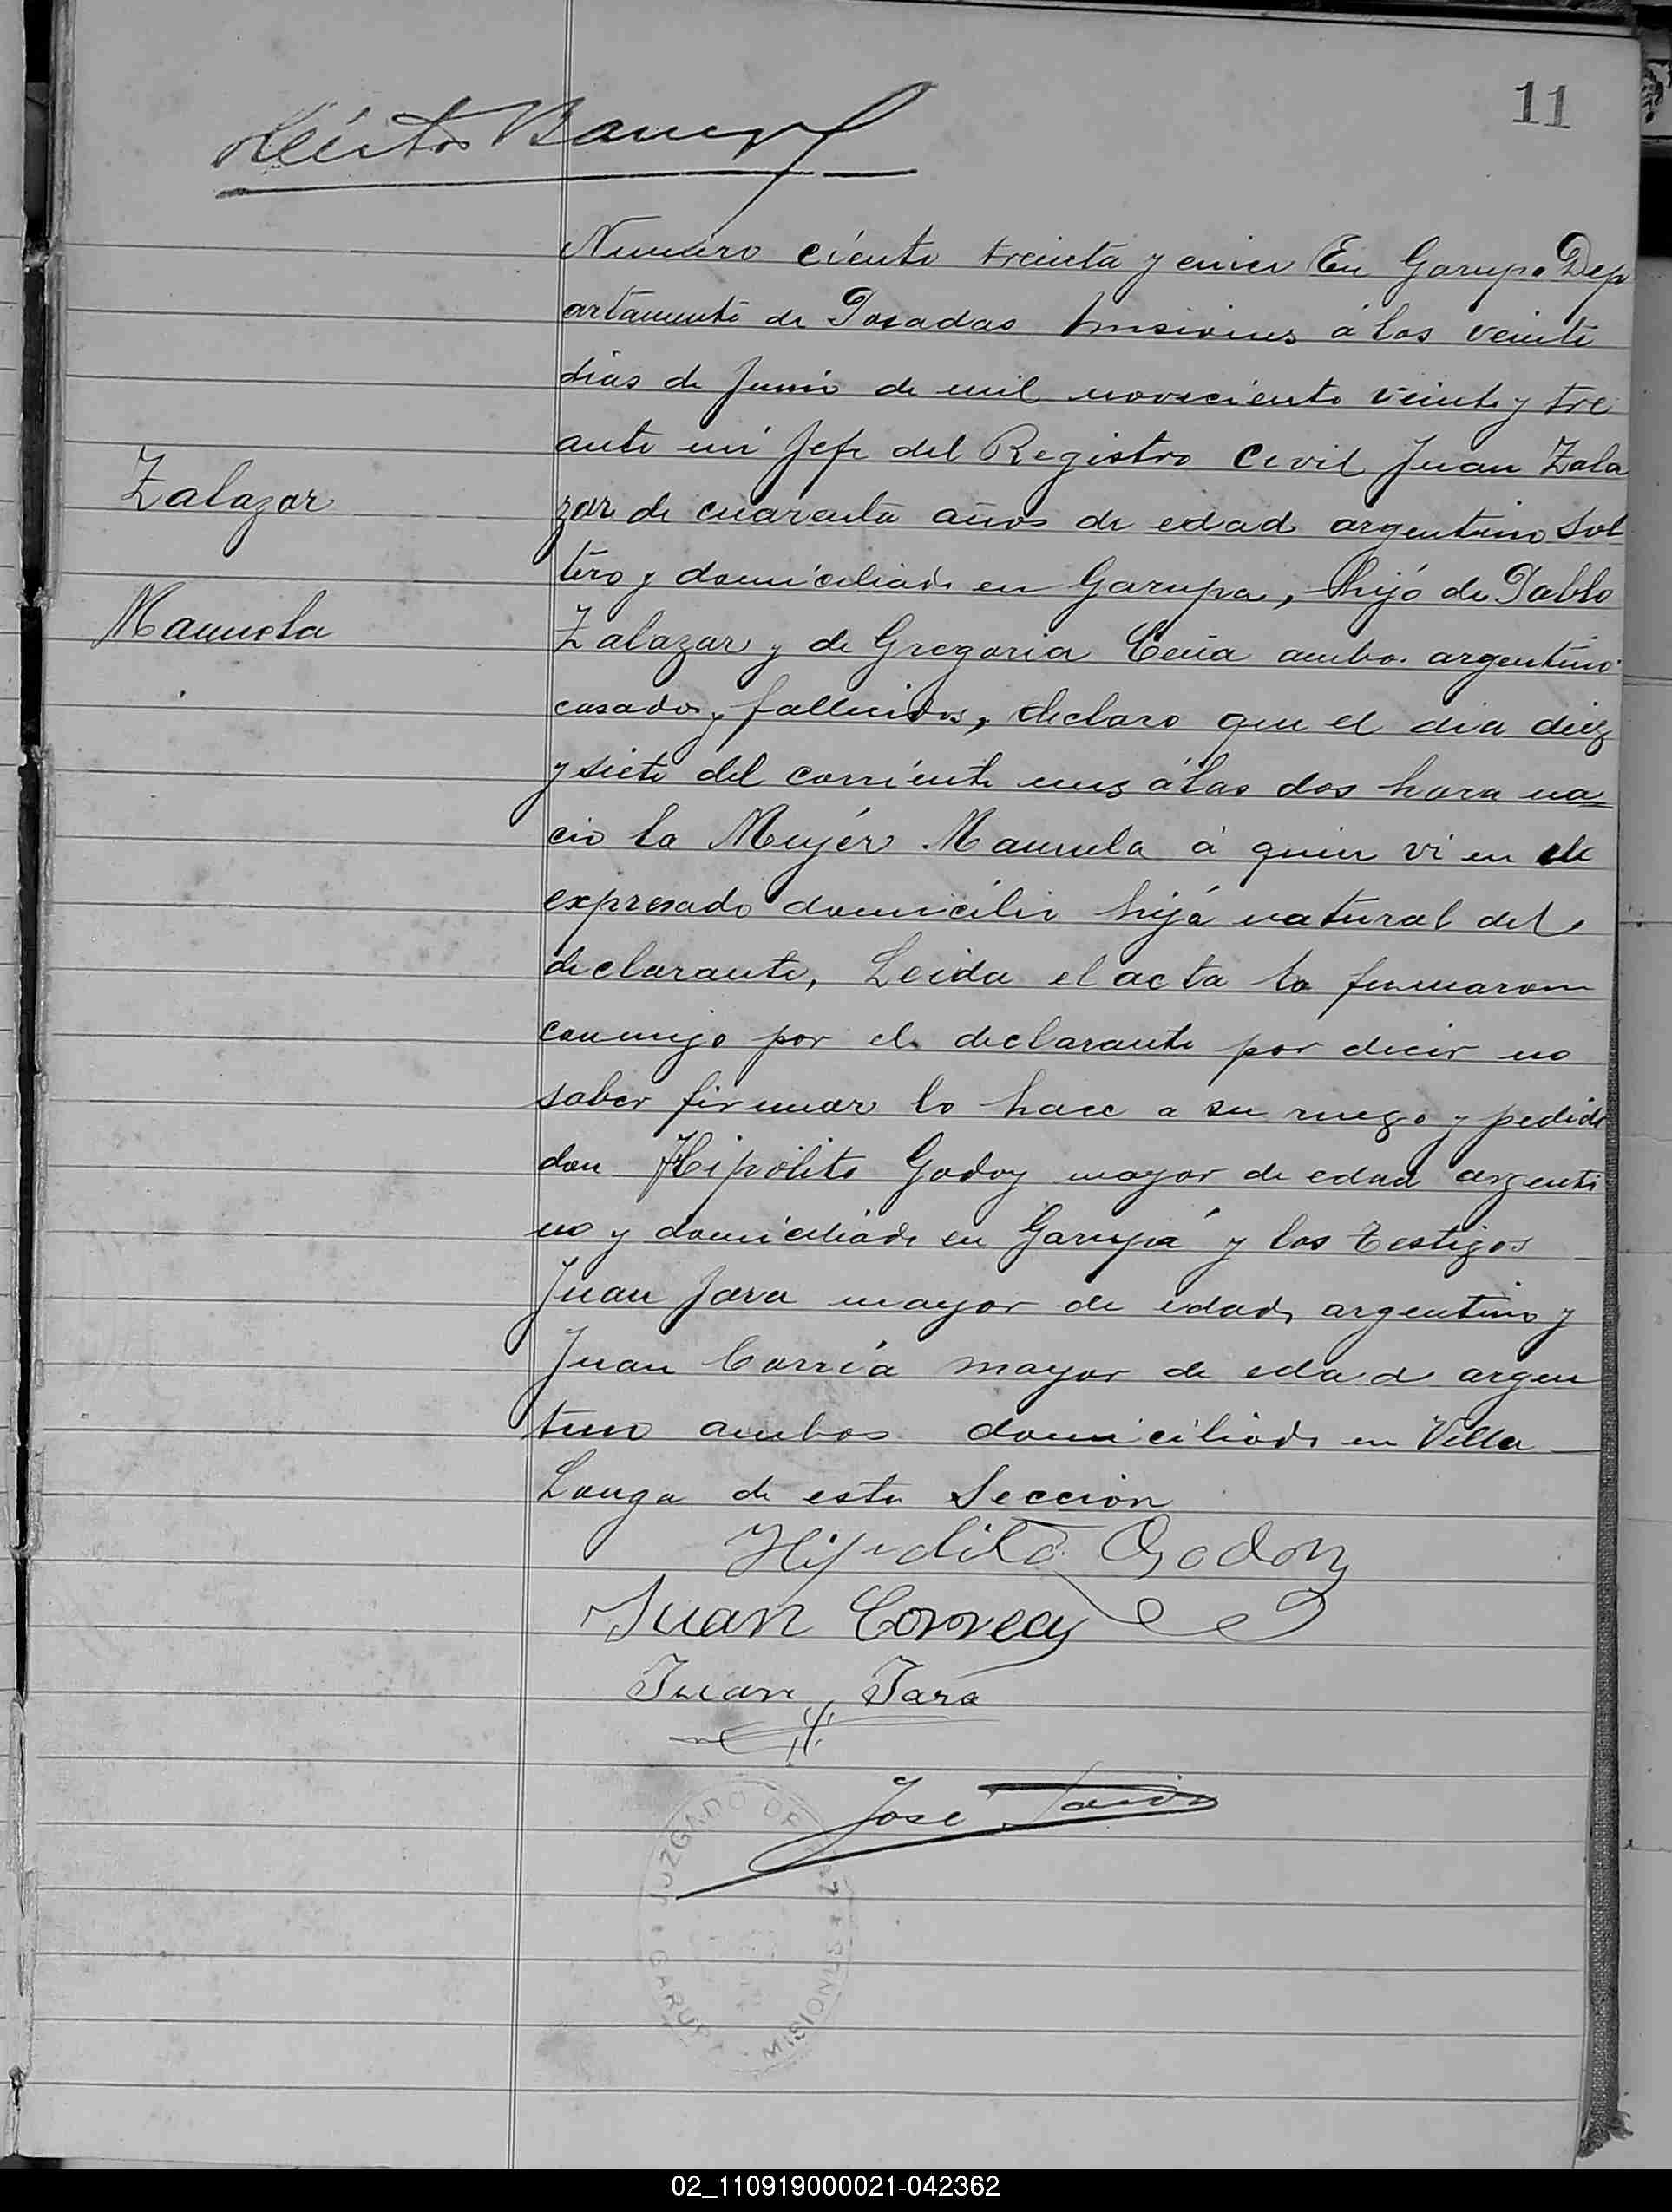 11
Numero ciento treinta y cinco En Garupa Dep
artamento de Posadas Misiones á los veinte
dias de Junio de mil noveciento veinte y tre
ante mi Jefe del Registro Civil Juan Zala
Zalazar
zar de cuarenta años de edad argentino sol
tero y domiciliado en Garupa, hijo de Pablo
Manuela
Zalazar y de Gregoria ambos argentino
casados y fallecidos, declaro que el dia diez
y siete del corriente mes á las dos hora na
cio la Mujér Manuela á quien vi en el
expresado domicilio hijá natural del
declarante, Leida el acta la firmaron
conmigo por el declarante por decir no
saber firmar lo hace a su ruego y pedido
don Hipólito Godoy mayor de edad argenti
no y domiciliado en Garupá y los testigos
Juan Jara mayor de edad, argentino y
Juan Corréa mayor de edad argen
tino ambos domiciliado en Villa
Longa de esta Sección
Hipolito Godoy
Juan Correa
Juan Jara
José
JUZGADO DE PAZ
GARUPA
MISIONES
02_110919000021-042362